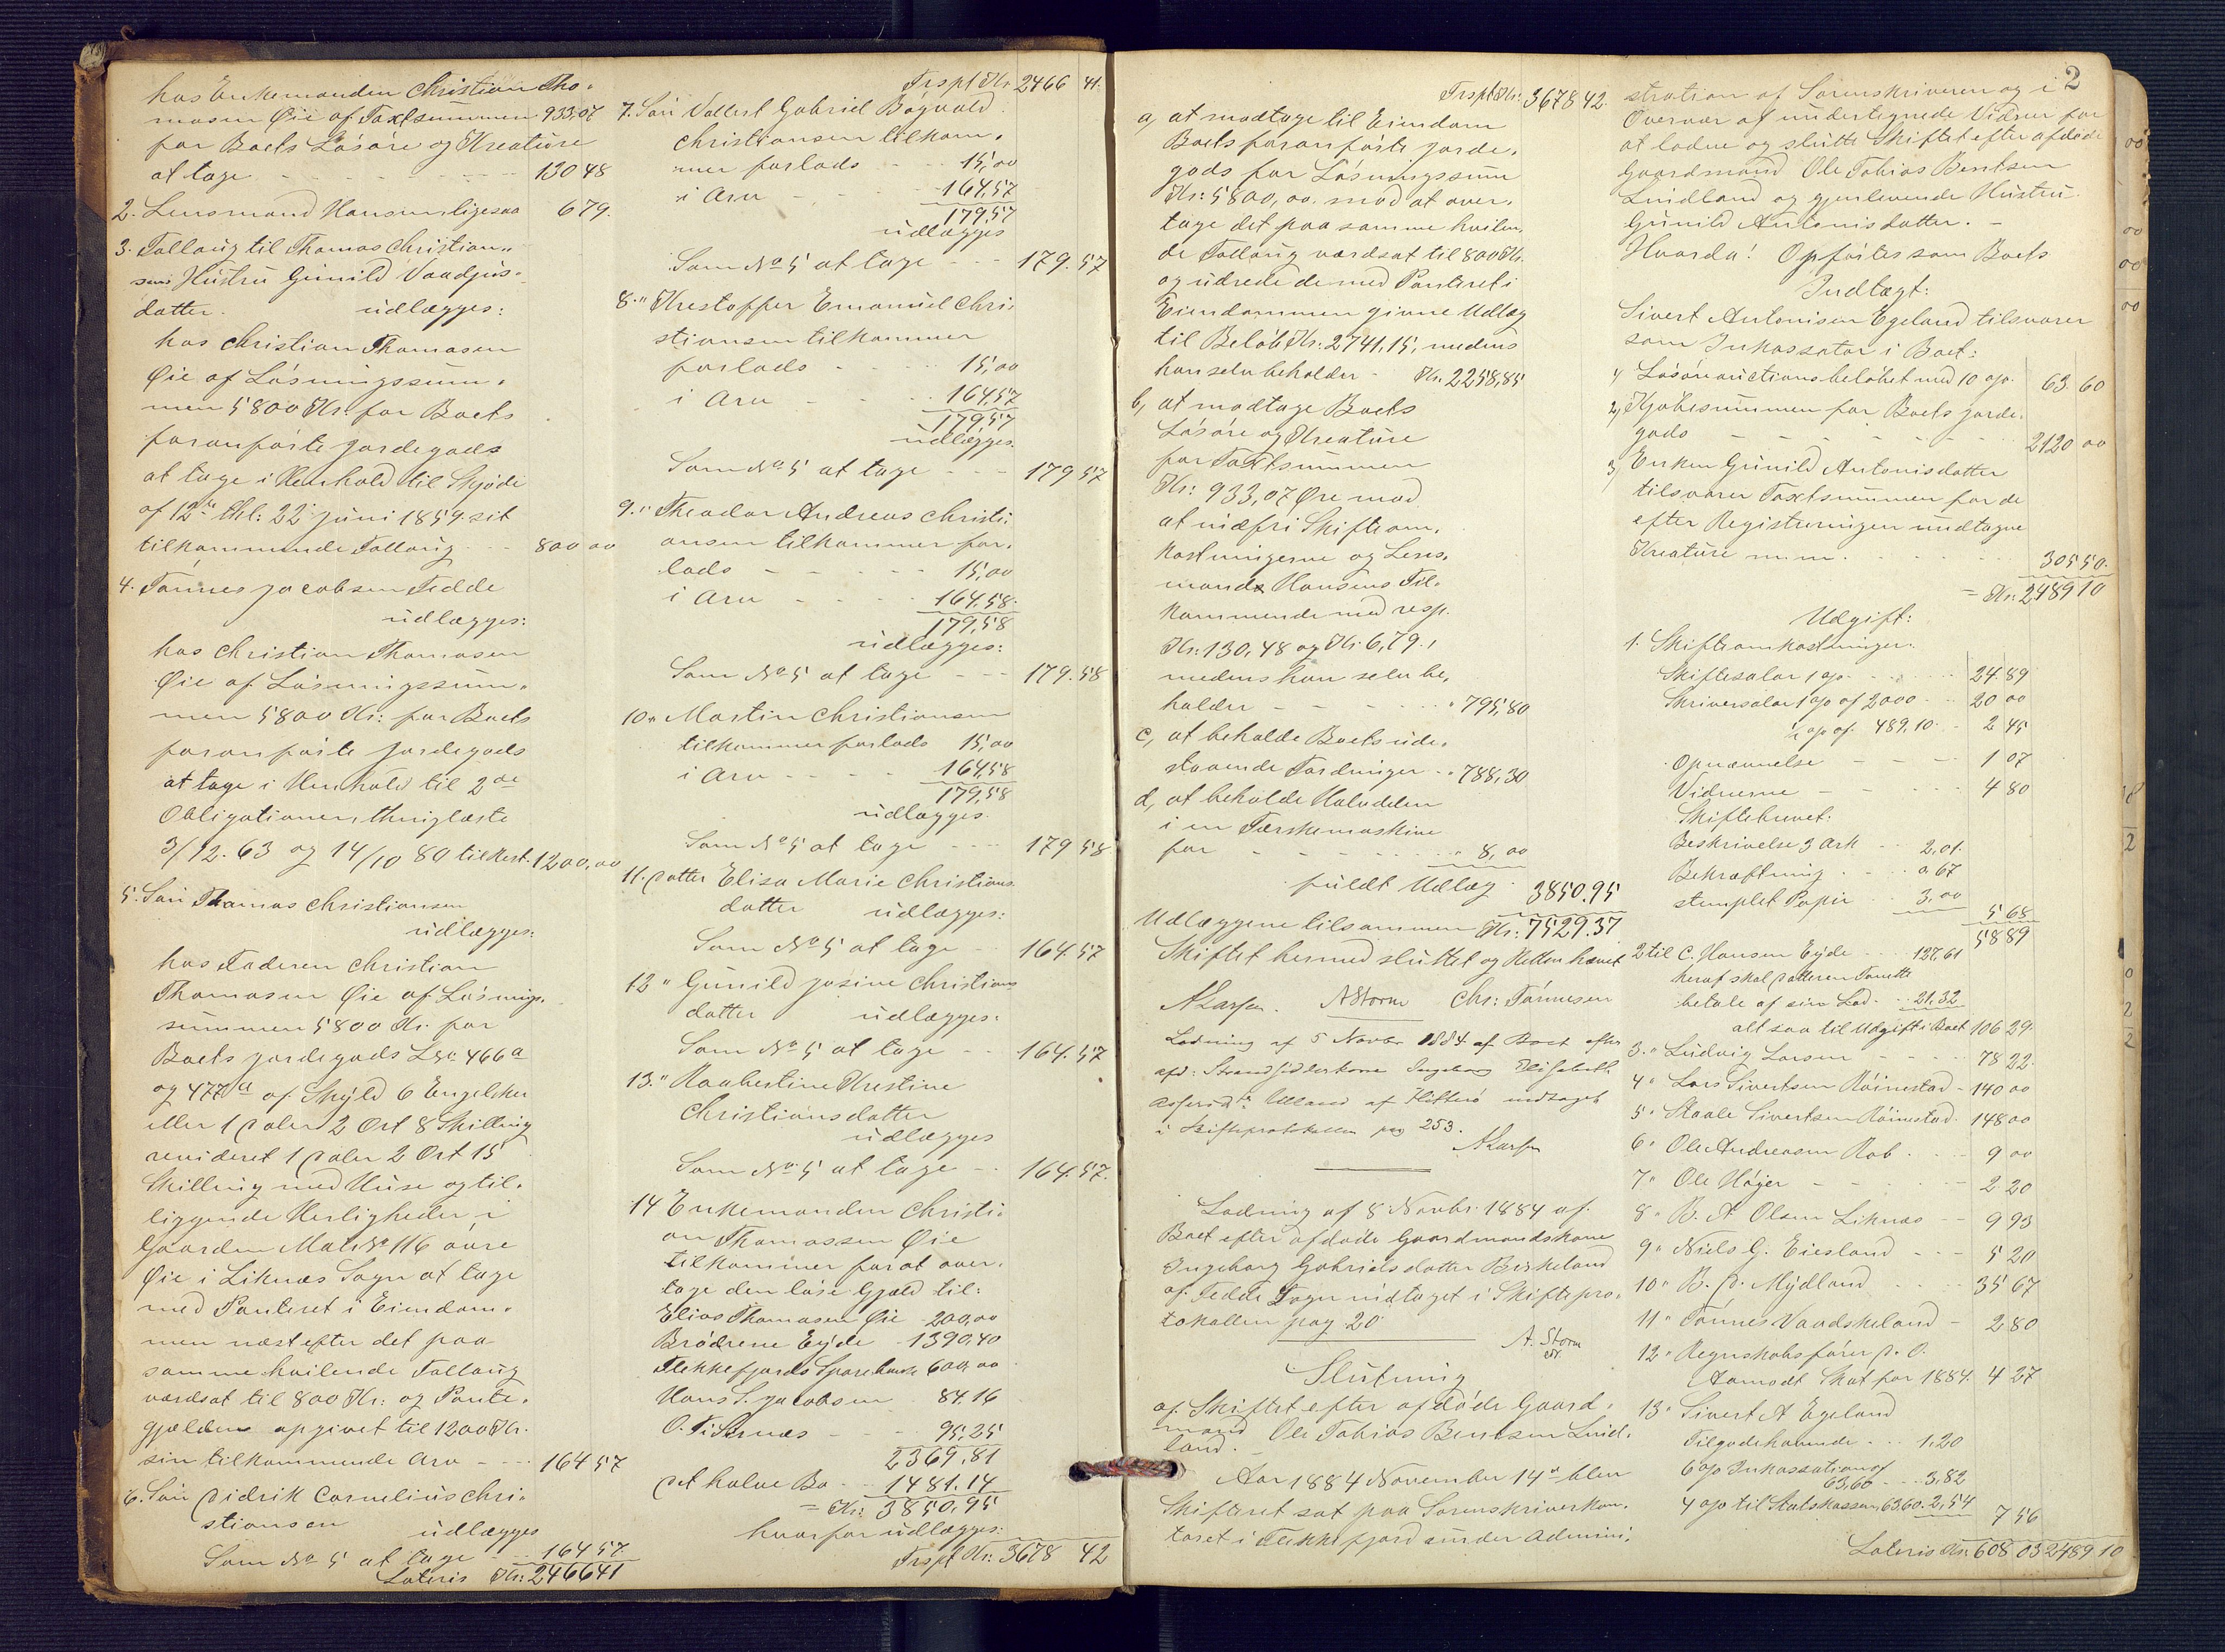 hos Enkemanden Christian Tho-
masen Øie af Taxtsummen 933,07
for Boets Løsøre og Kreature
at tage - - - 130 48
2. Lensmand Hansen ligesaa 6 79.
3. Follaug til Thomas Christian-
sens Hustru Gunild Vaadjus-
datter. udlægges:
hos Christian Thomasen
Øie af Løsningssum-
men 5800 Kr. for Boets
foranførte Jordegods
at tage i Henhold til Skjøde
af 12te thl: 22 Juni 1859 sit
tilkommende Follaug - - 800 00
4. Tønnes Jacobsen Fedde
udlægges:
hos Christian Thomasen
Øie af Løsningssum-
men 5800 Kr: for Boets
foranførte Jordegods
at tage i Henhold til 2de
Obligationer, thinglæste
3/12. 63 og 14/10 80 til Rest. 1200,00
5. Søn Thomas Christiansen
udlægges:
hos Faderen Christian
Thomasen Øie af Løsnings-
summen 5800 Kr. for
Boets Jordegods LNo. 466a
og 477a af Skyld 6 Engelsker
eller 1 Daler 2 Ort 8 Skilling
revideret 1 Daler 2 Ort 15
Skilling med Huse og til-
liggende Herligheder i
Gaarden Matr No 116 øvre
Øie i Liknæs Sogn at tage
med Panteret i Eiendom-
men næst efter det paa
samme hvilende Follaug
værdsat til 800 Kr: og Pante-
gjælden opgivet til 1200 Kr.
sin tilkommende Arv - - 164 57
6. Søn Didrik Cornelius Chri-
stiansen udlægges
Som No 5 at tage 164 57
Lateris Kr: 2466 41
Trspt Kr. 2466 41.
7. Søn Vallert Gabriel Bøgvald
Christiansen tilkom-
mer forlods - - 15,00
i Arv - - 164,57
179,57
udlægges
Som No 5 at tage - - - 179.57
8. " Krestoffer Emanuel Chri-
stiansen tilkommer
forlods - - 15,00
i Arv - - 164,57
179,57
udlægges.
Som No 5 at tage - - - 179 57
9. " Theodor Andreas Christi-
ansen tilkommer for-
lods - - 15,00
i Arv - - 164,58.
179,58
udlægges:
Som No 5 at tage - - - 179.58
10 " Martin Christiansen
tilkommer forlods 15,00
i Arv - - 164,58
179,58
udlægges.
Som No 5 at tage - - - 179 58
11. Datter Elisa Marie Christians-
datter udlægges:
Som No 5 at tage - - 164.57
12 " Gunild Josine Christians-
datter udlægges:
Som No 5 at tage - - 164.57
13. " Raabertine Krestine
Christiansdatter
udlægges
Som No 5 at tage - - 164.57.
14 Enkemanden Christi-
an Thomassen Øie
tilkommer for at over-
tage den løse Gjæld til:
Elias Thomasen Øie 200,00
Brødrene Eyde - 1390,40
Flekkefjords Sparebank 600,00
Hans S. Jacobsen 84.16
O. F. Sirnæs - - 95,25
2369,81
Det halve Bo - 1481.14
= Kr: 3850,95
hvorfor udlægges:
Trspt Kr: 3678 42
Trspt Kr: 3678 42.
a, at modtage til Eiendom
Boets foranførte Jorde-
gods for Løsningssum
Kr: 5800,00. mod at over-
tage det paa samme hvilen-
de Follaug værdsat til 800 Kr.
og udrede de med Panteret i
Eiendommen givne Udlæg
til Beløb Kr: 2741,15, medens
han selv beholder - Kr. 2258,85
b, at modtage Boets
Løsøre og Kreature
for Taxtsummen
Kr: 933,07 Øre mod
at indfri Skifteom-
kostningerne og Lens-
mand Hansens Til-
kommende med resp.
Kr: 130,48 og Kr. 6,79.,
medens han selv be-
holder - - - - " 795,80
c, at beholde Boets ude-
staaende Fordringer - " 788,30
d, at beholde Halvdelen
i en Tærskemaskine
for - - - - " 8,00
fuldt Udlæg 3850.95
Udlæggene tilsammen Kr: 7529.37
Skiftet hermed sluttet og Retten hævet
A Larsen. A Storm Chr: Tønnesen
Lodning af 5 Novbr 1884 af Boet efter
afd: Strandsidderkone Ingeborg Elisabeth
Asserdtr Ulland af Hitterø indtaget
i Skifteprotokollen pag 253.
A Larsen
Lodning af 8 Novbr. 1884 af
Boet efter afdøde Gaardmandskone
Ingeborg Gabrielsdatter Birkeland
af Fedde Sogn indtaget i Skiftepro-
tokollen pag 20
A. Storm
Slutning
af Skiftet efter afdøde Gaard-
mand Ole Tobias Bentsen Lind-
land. -
Aar 1884 November 14de blev
Skifteret sat paa Sorenskriverkon-
toret i Flekkefjord under Admini-
2
stration af Sorenskriveren og i
Overvær af undertegnede Vidner for
at lodne og slutte Skiftet efter afdøde
Gaardmand Ole Tobias Bentsen
Lindland og gjenlevende Hustru
Gunild Antonisdatter. -
Hvorda! Opførtes som Boets
Indtægt:
Sivert Antonisen Egeland tilsvarer
som Inkassator i Boet:
1, Løsøreauctionsbeløbet med 10 o/o. 63. 60
2, Kjøbesummen for Boets Jorde-
gods - - - - 2120 00
3, Enken Gunild Antonisdatter
tilsvarer Taxtsummen for de
efter Registreringen undtagne
Kreature m.m. - - - 305 50.
= Kr: 2489 10
Udgift:
1. Skifteomkostninger.
Skiftesalar 1 o/o - - - 24 89
Skriversalar 1 o/o af 2000 - - 20 00
½ o/o af 489.10 - - 2 45
Opnævnelse - - - 1 07
Vidnerne - - - 4 80
Skiftebrevet:
Beskrivelse 3 Ark - - 2,01.
Bekræftning - - 0 67
stemplet Papir - - 3,00
5 68
58 89
2 til C. Hansen Eyde - - 127,61
heraf skal Datteren Tonette
betale af sin Lod - - 21,32
altsaa til Udgift i Boet 106 29.
3. " Ludvig Larsen - - - 78 22
4 " Lars Sivertsen Røinestad - 140 00
5 " Staale Sivertsen Røinestad - 148 00
6 " Ole Andreasen Rob - - 9 00
7 " Ole Høyer - - - 2 20
8 " B. A Olsen Liknæs - - 9 93
9 " Niels G. Eiesland - - - 5 20
10 " B. D. Mydland - - - 35 67
11 " Tønnes Vaadskeland - 2 80
12 " Regnskabsfører D. O.
Aamodt Skat for 1884. 4 27
13. " Sivert A Egeland
Tilgodehavende - - 1,20
6 o/o Inkassation af
63,60 - - 3,82
4 o/o til Statskassen 63,60. 2,54
7 56
Lateris Kr: 608 03 2489 10